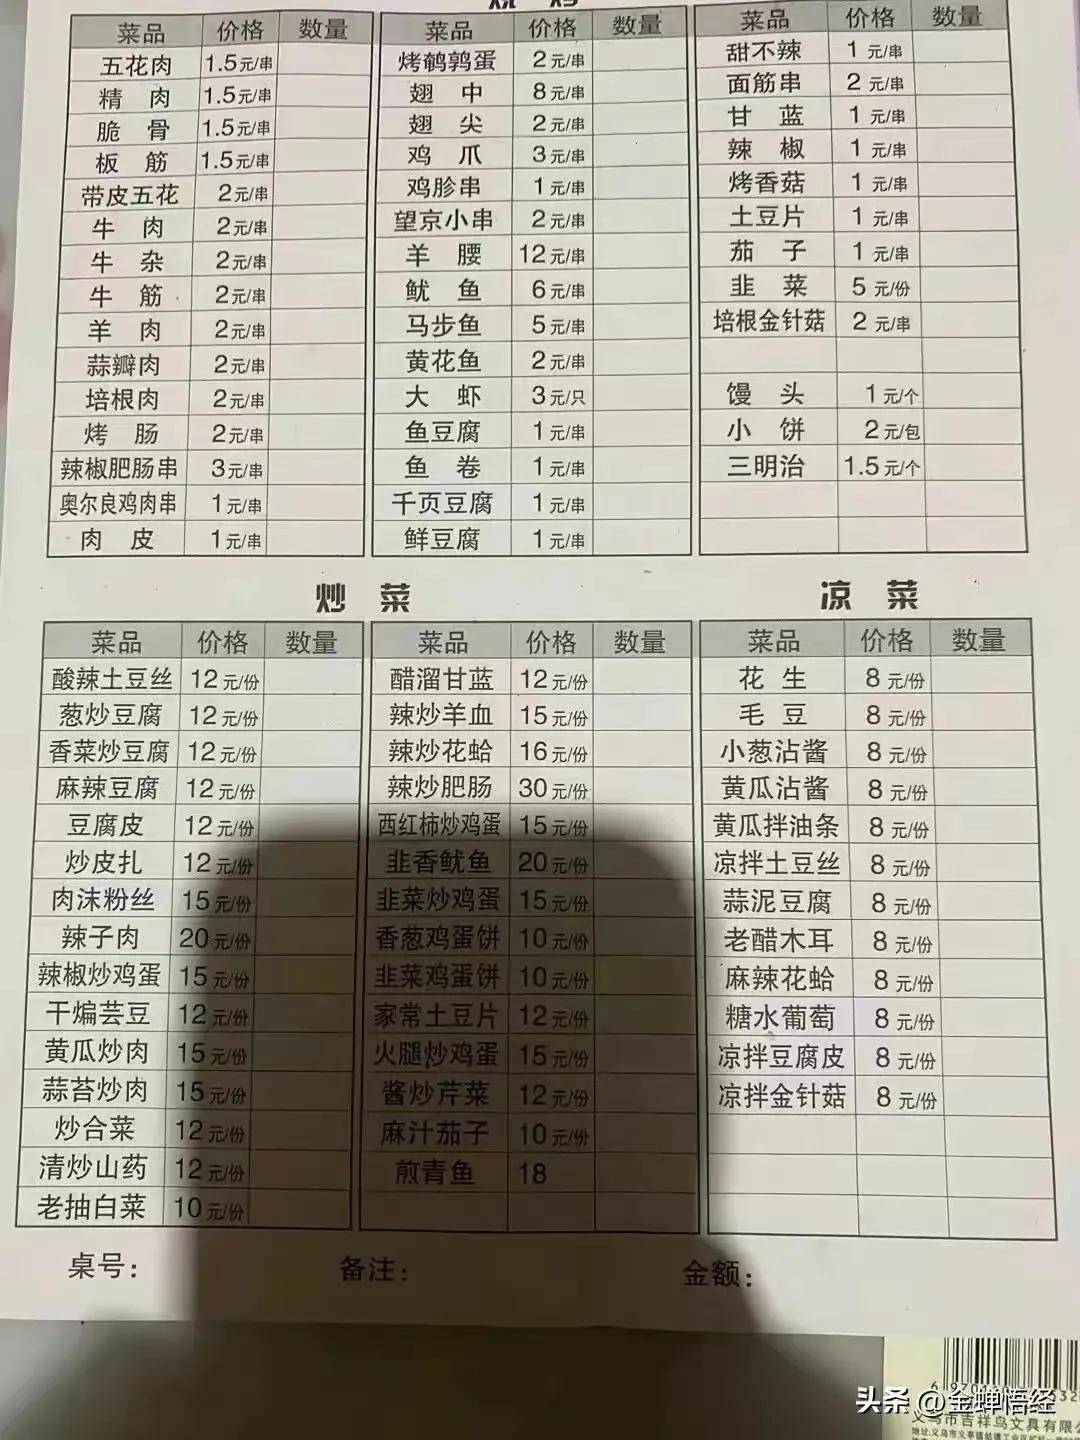 烧 烤
菜品 价格 数量 菜品 价格 数量 菜品 价格 数量
五花肉 1.5元/串 烤鹌鹑蛋 2元/串 甜不辣 1元/串
精肉 1.5元/串 翅中 8元/串 面筋串 2元/串
脆骨 1.5元/串 翅尖 2元/串 甘蓝 1元/串
板筋 1.5元/串 鸡爪 3元/串 辣椒 1元/串
带皮五花 2元/串 鸡胗串 1元/串 烤香菇 1元/串
牛肉 2元/串 望京小串 2元/串 土豆片 1元/串
牛杂 2元/串 羊腰 12元/串 茄子 1元/串
牛筋 2元/串 鱿鱼 6元/串 韭菜 5元/份
羊肉 2元/串 马步鱼 5元/串 培根金针菇 2元/串
蒜瓣肉 2元/串 黄花鱼 2元/串
培根肉 2元/串 大虾 3元/只 馒头 1元/个
烤肠 2元/串 鱼豆腐 1元/串 小饼 2元/包
辣椒肥肠串 3元/串 鱼卷 1元/串 三明治 1.5元/个
奥尔良鸡肉串 1元/串 千页豆腐 1元/串
肉皮 1元/串 鲜豆腐 1元/串
炒 菜 凉 菜
菜品 价格 数量 菜品 价格 数量 菜品 价格 数量
酸辣土豆丝 12元/份 醋溜甘蓝 12元/份 花生 8元/份
葱炒豆腐 12元/份 辣炒羊血 15元/份 毛豆 8元/份
香菜炒豆腐 12元/份 辣炒花蛤 16元/份 小葱沾酱 8元/份
麻辣豆腐 12元/份 辣炒肥肠 30元/份 黄瓜沾酱 8元/份
豆腐皮 12元/份 西红柿炒鸡蛋 15元/份 黄瓜拌油条 8元/份
炒皮扎 12元/份 韭香鱿鱼 20元/份 凉拌土豆丝 8元/份
肉沫粉丝 15元/份 韭菜炒鸡蛋 15元/份 蒜泥豆腐 8元/份
辣子肉 20元/份 香葱鸡蛋饼 10元/份 老醋木耳 8元/份
辣椒炒鸡蛋 15元/份 韭菜鸡蛋饼 10元/份 麻辣花蛤 8元/份
干煸芸豆 12元/份 家常土豆片 12元/份 糖水葡萄 8元/份
黄瓜炒肉 15元/份 火腿炒鸡蛋 15元/份 凉拌豆腐皮 8元/份
蒜苔炒肉 15元/份 酱炒芹菜 12元/份 凉拌金针菇 8元/份
炒合菜 12元/份 麻汁茄子 10元/份
清炒山药 12元/份 煎青鱼 18
老抽白菜 10元/份
桌号： 备注： 金额：
头条 @金蝉悟经
义乌市吉祥鸟文具有限公